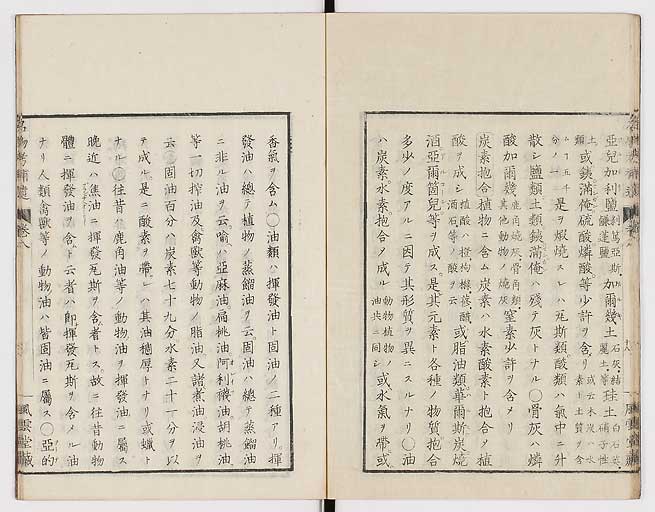 亞兒加利鹽 剥篤亞斯 鎌蓬鹽 加爾幾土 石灰、結麗土等 珪土 白石英硝子性
土 類 或鉄滿俺硫酸燐酸等少許ヲ含リ 或云木炭ハ水素ト土質ヲ含
ム丁五千分ノ一 是ヲ煆燒スレハ瓦斯類酸類ハ氣中ニ升
散シ鹽類土類鉄滿俺ハ殘テ灰トナル○骨灰ハ燐
酸加爾幾 鹿角燒灰骨角類其他動物ノ燒灰 窒素少許ヲ含メリ
炭素抱合植物ニ含ム炭素ハ水素酸素ト抱合メ植
酸ヲ成シ 或脂油類華爾斯炭燒
酒亞爾箇兒等ヲ成ス是其元素ト各種ノ物質抱合
多少ノ度アルニ因テ其形質ヲ異ニスルナリ○油
ハ炭素水素抱合メ成ル 動物植物ノ油共ニ同シ 或水氣ヲ帶或
香氣ヲ含ム○油類ハ揮發油ト固油ノ二種アリ揮
發油ハ總テ植物ノ蒸餾油ヲ云固油ハ總テ蒸餾油
ニ非ル油ヲ云喩ハ亞麻油扁桃油阿利襪油胡桃油
等一切搾油及禽獸等動物ノ脂油又諸煮油浸油ヲ
云○固油百分ハ炭素七十九分水素二十一分ヲ以
テ成ル是ニ酸素ヲ帶レハ其油穂厚トナリ或蠟ト
ナル○往昔ハ鹿角油等ノ動物油ヲ揮發油ニ屬ス
晩近ハ焦油ニ揮發瓦斯ヲ含者トス故ニ往昔動物
體ニ揮發油ヲ含ト云者ハ即揮發瓦斯ヲ含メル油
ナリ人類禽獸等ノ動物油ハ皆固油ニ屬ス○亞的
名物考補遺 卷八
風雲堂藏